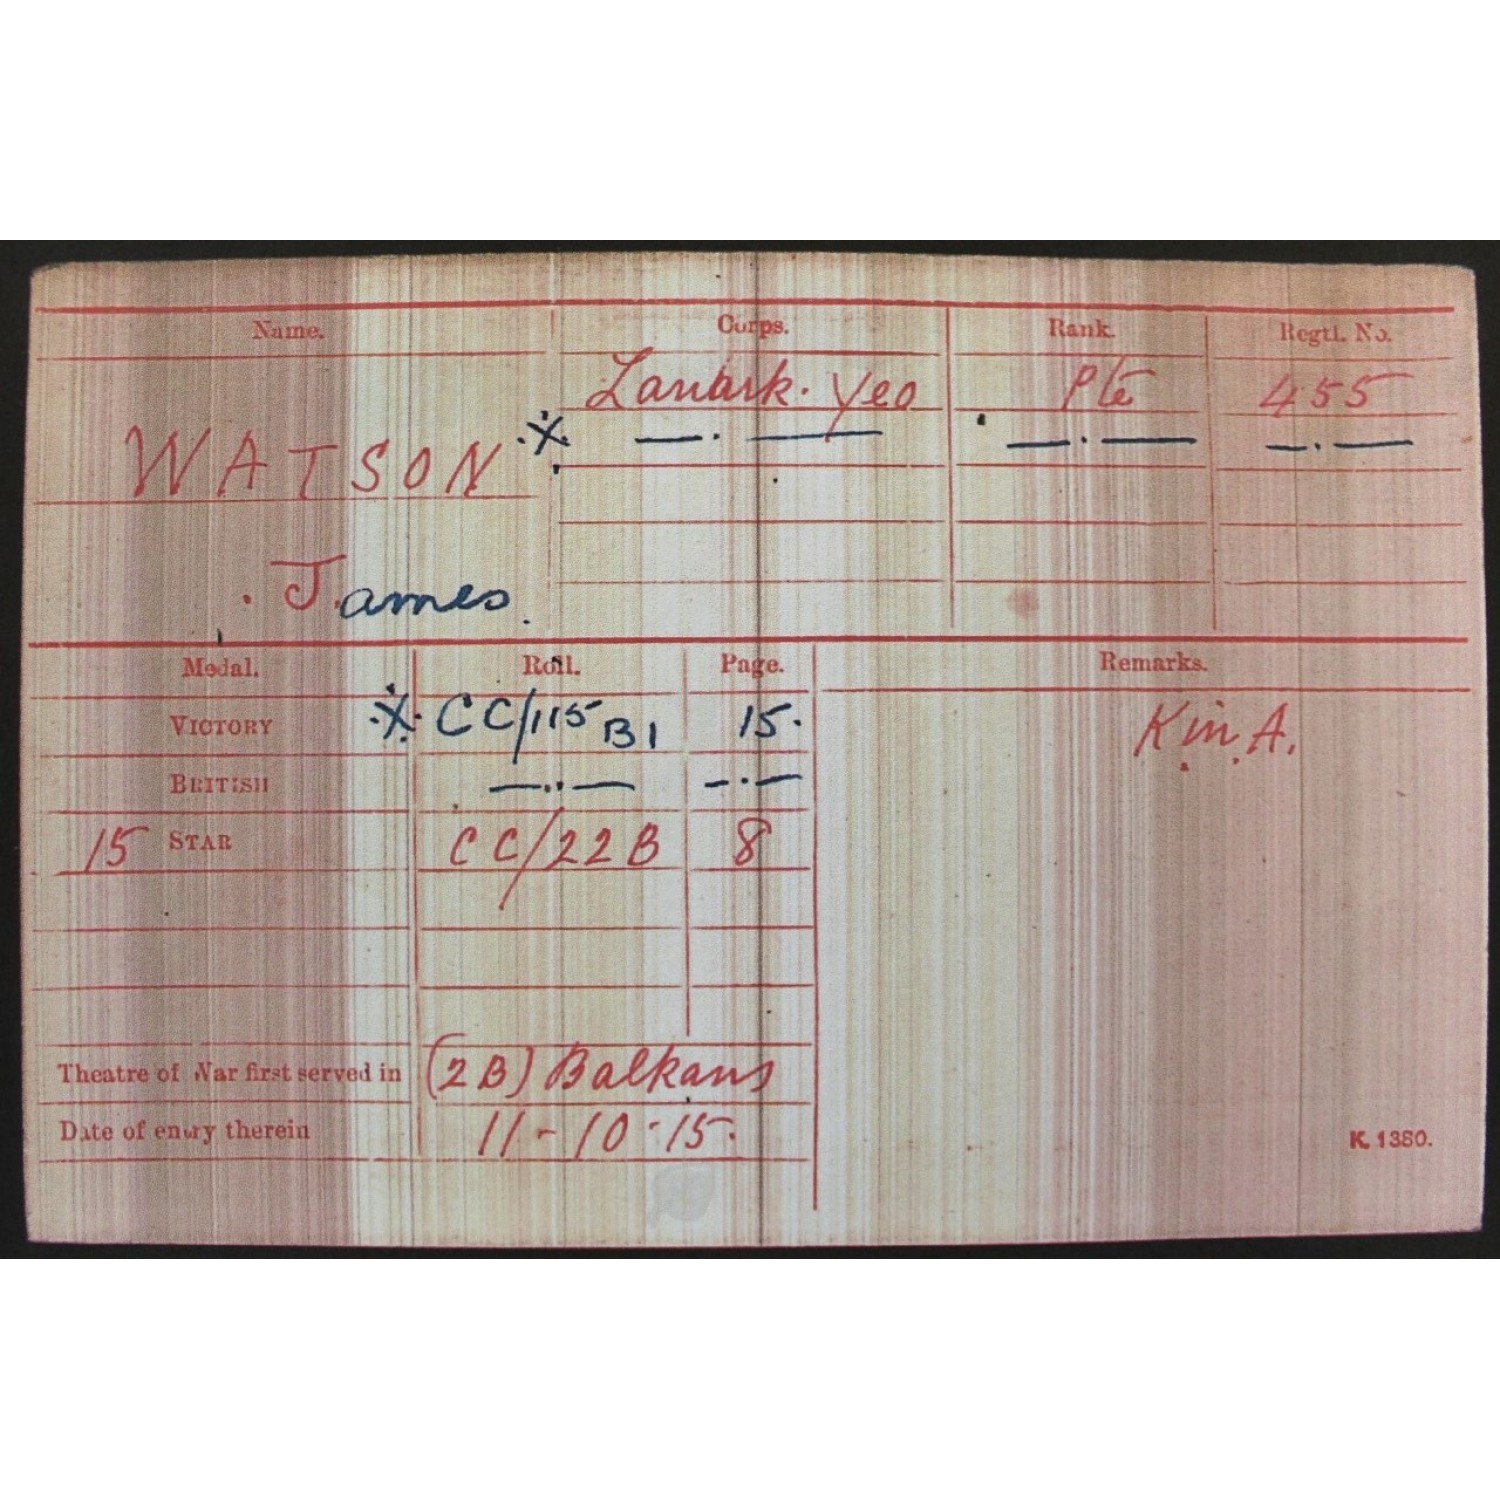 Name. Corps. Rank. Regtl. No.
Lanark. Yeo Pte 455
WATSON ※ —.— —.— —.—
James.
Medal. Roll. Page. Remarks.
VICTORY ※ CC/115 B1 15. K in A.
BRITISH —.— —.—
15 STAR CC/22B 8
Theatre of War first served in (2B) Balkans
Date of entry therein 11-10-15.
K. 1380.